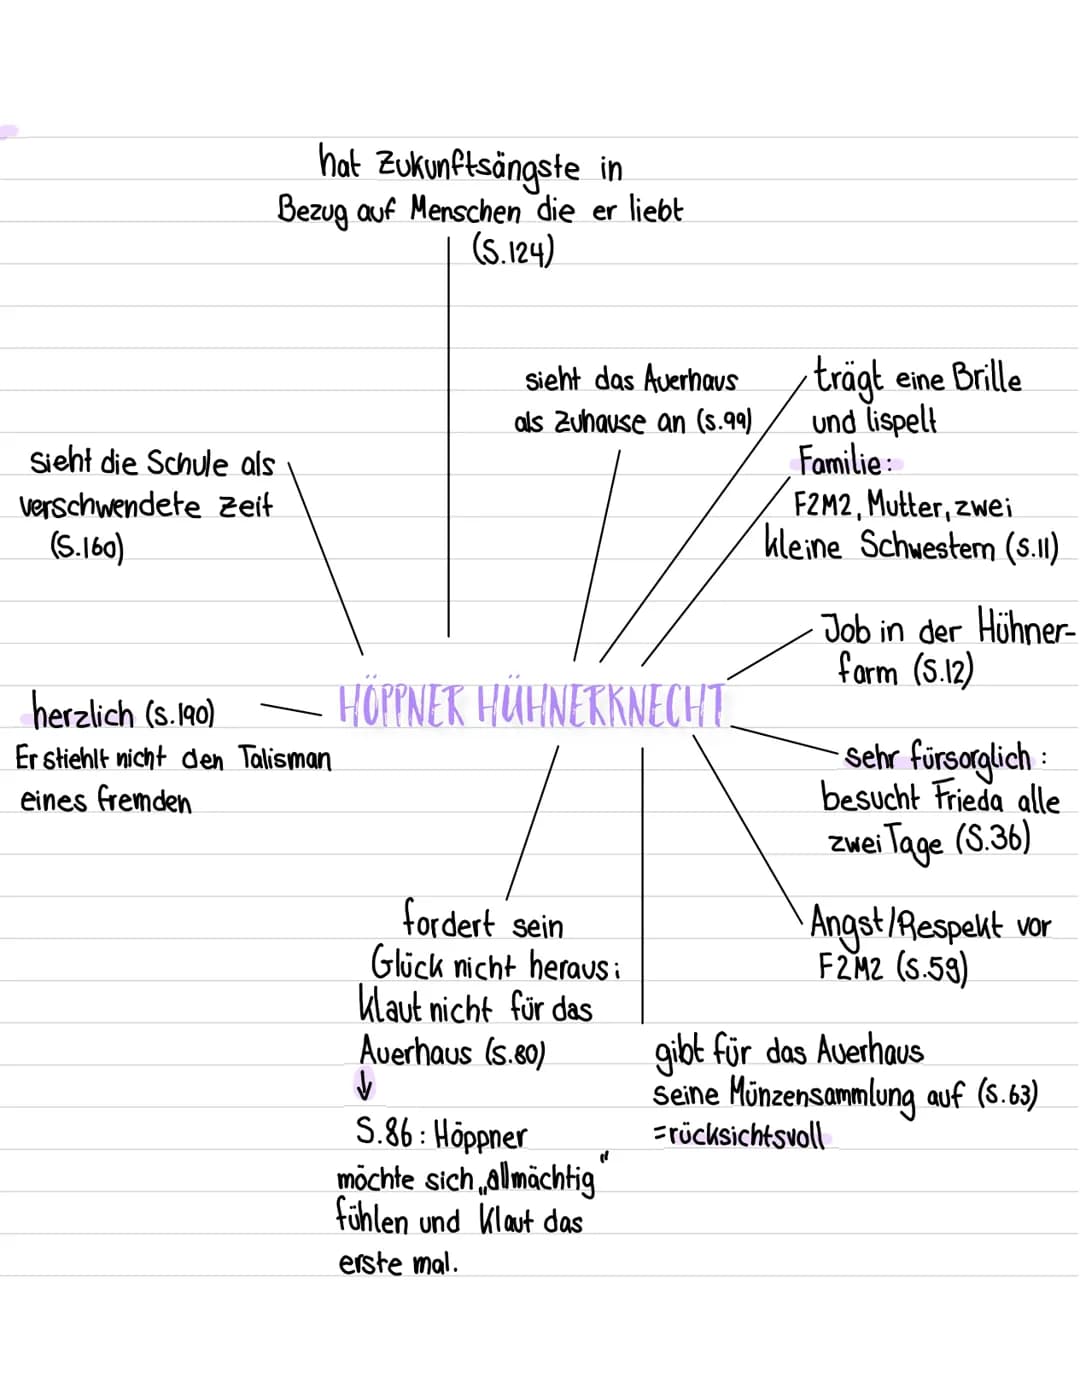 hat Zukunftsängste in
Bezug auf Menschen die er liebt
(S.124)
sieht das Auerhaus
als Zuhause an (S.99)
trägt eine Brille
und lispelt
Familie:
F2M2, Mutter, zwei
kleine Schwestern (S.11)
sieht die Schule als
verschwendete Zeit
(S.160)
Job in der Hühner-
farm (S.12)
HÖPPNER HÜHNERKNECHT
herzlich (S.190)
Er stiehlt nicht den Talisman
eines fremden
sehr fürsorglich:
besucht Frieda alle
zwei Tage (S.36)
Angst/Respekt vor
F2M2 (S.59)
fordert sein
Glück nicht heraus:
klaut nicht für das
Auerhaus (S.80)
↓
S.86: Höppner
möchte sich „allmächtig"
fühlen und klaut das
erste mal.
gibt für das Auerhaus
seine Münzensammlung auf (S.63)
=rücksichtsvoll